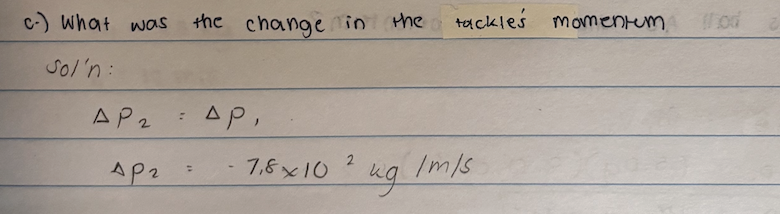 c.) What was the change in the tackle's momentum
Sol'n:
ΔP₂ = ΔP₁
ΔP₂ = - 7.8 x 10² kg /m/s